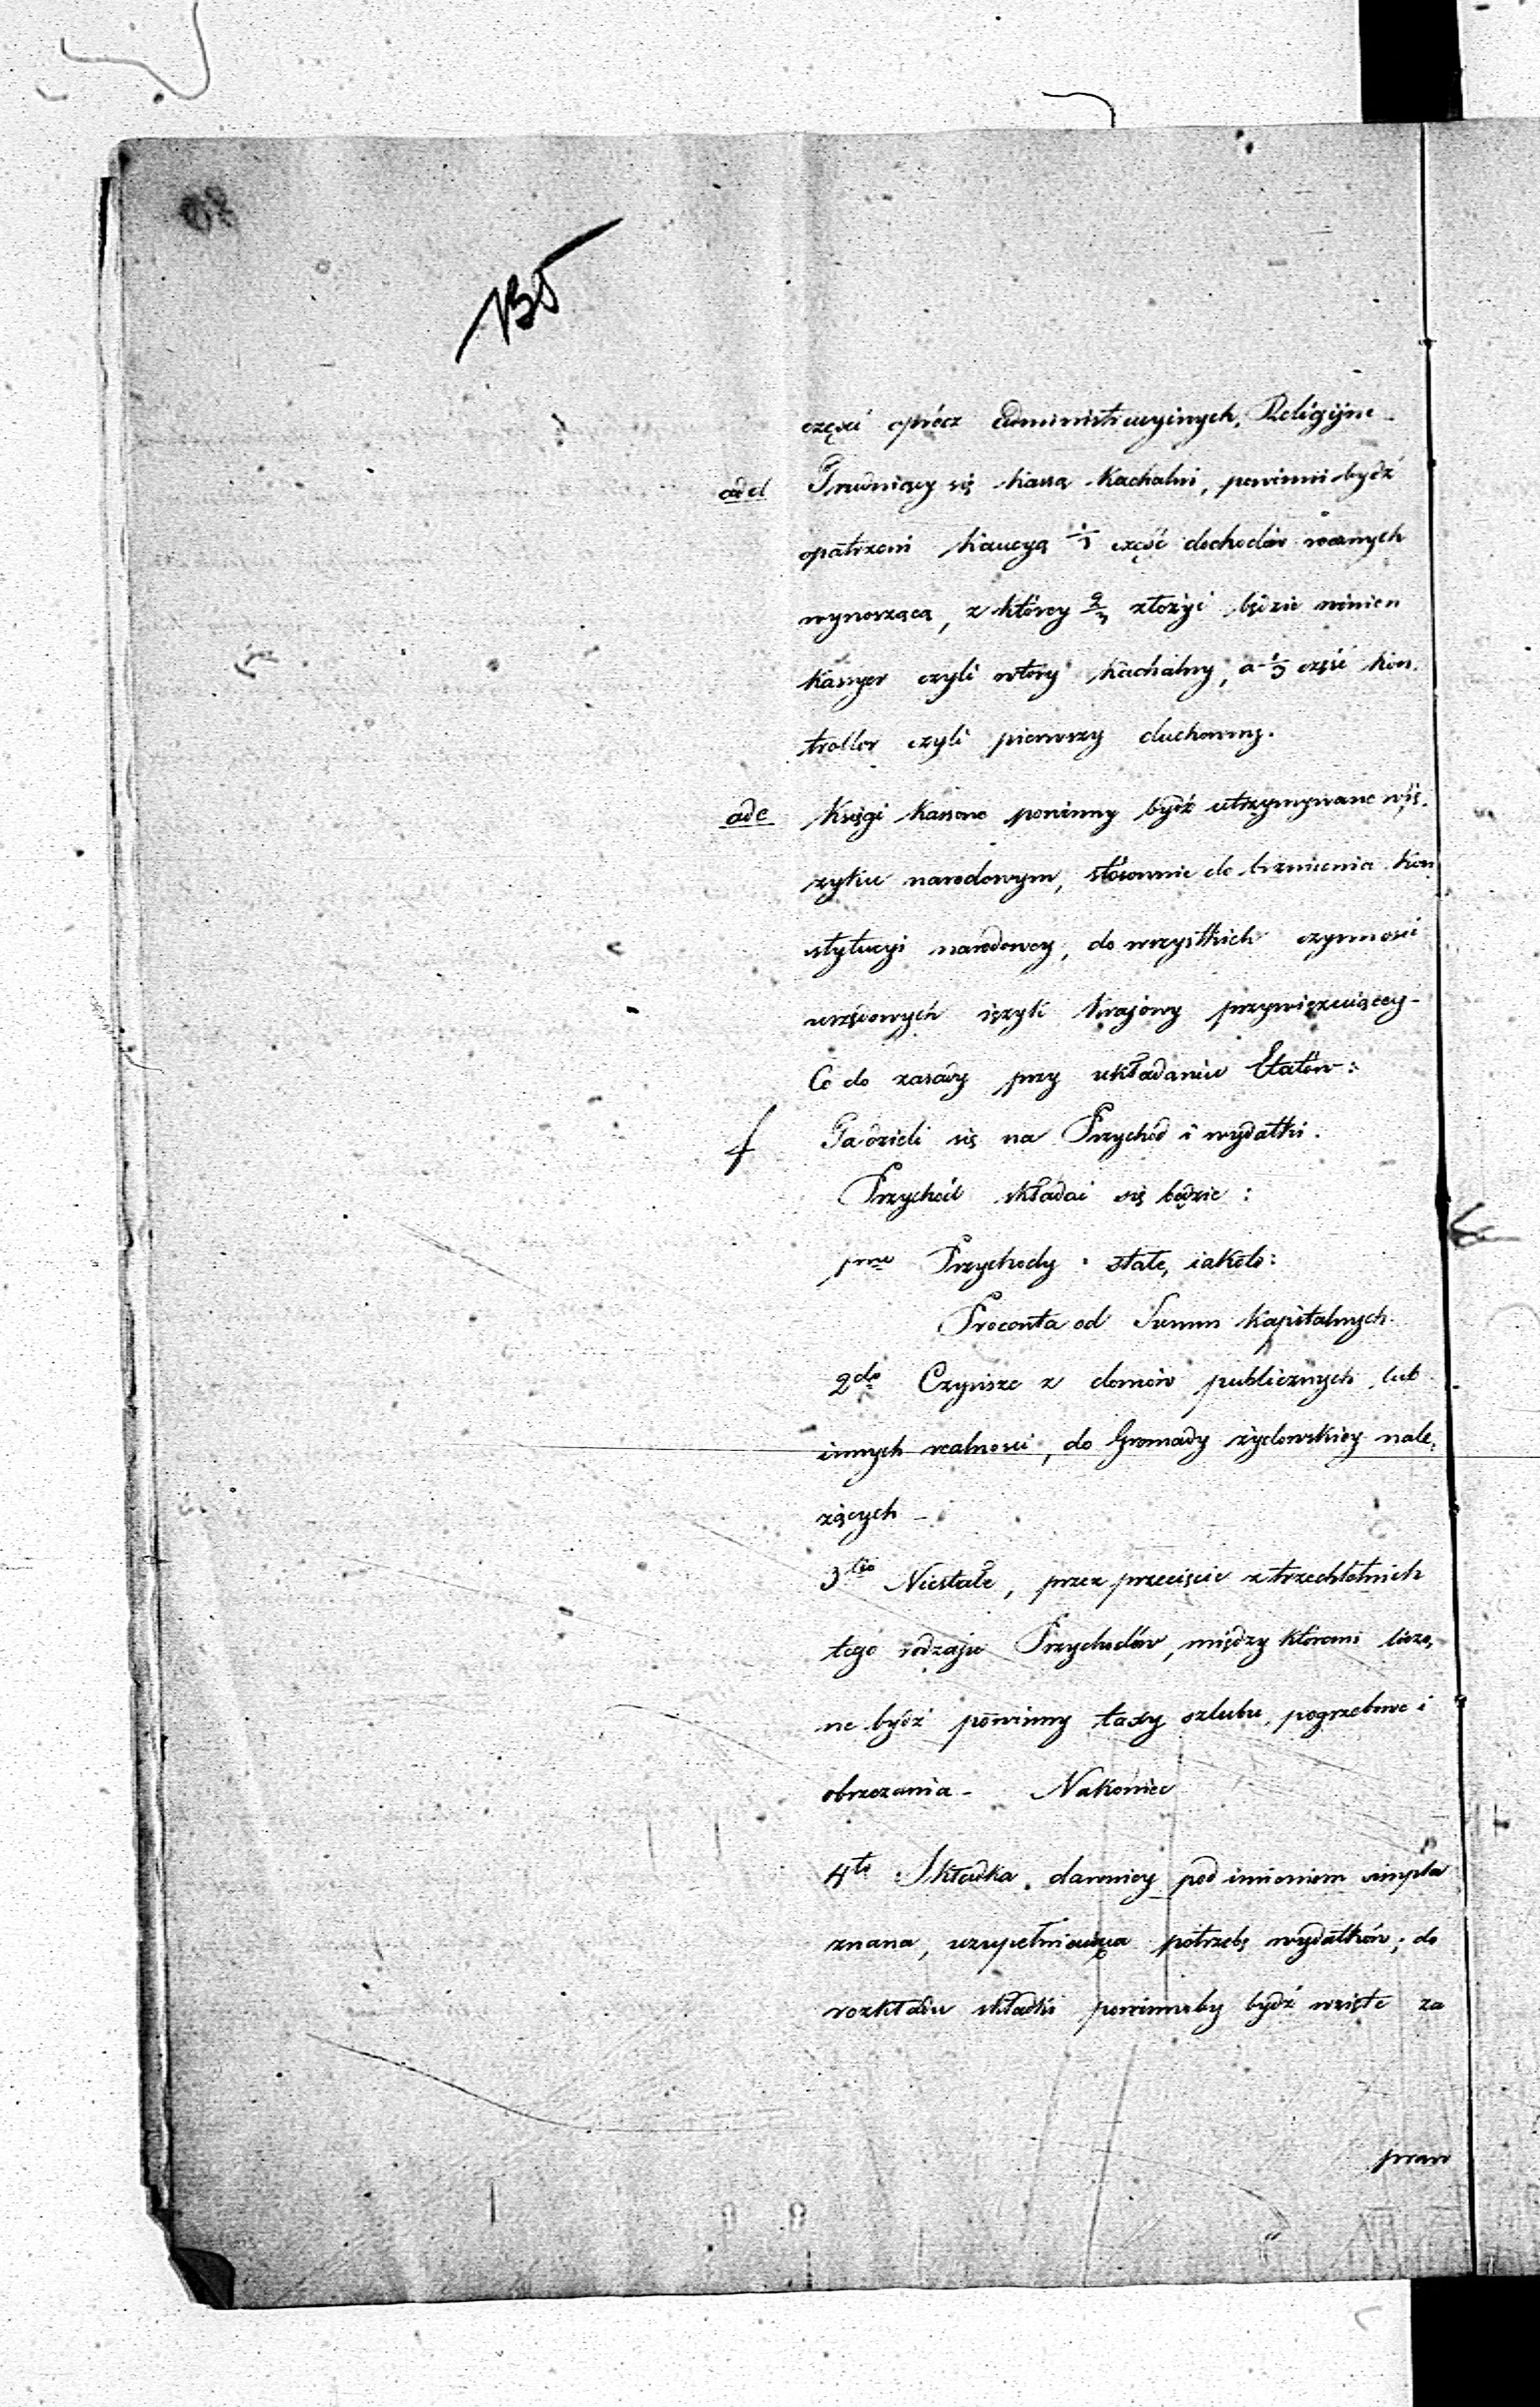 135
części oprócz Administracyinych, Religijne
ad d Trudniący się kassą Kachalni, powinni bydź
opatrzeni kaucyą 1/3 część dochodów rocznych
wynoszącą, z którey 2/3 złożyć będzie winien
Kassyer czyli wtóry kachalny, a 1/3 część kon-
troller czyli pierwszy duchowny.
ad e Księgi kassowe powinny bydź utrzymywane w ję-
zyku narodowym, stosownie do brzmienia Kon
stytucyi narodowey, do wszystkich czynności
urzędowych ięzyk krajowy przywięzuiącey-
Co do zasady przy układaniu Etatów:
f Ta dzieli się na Przychód i wydatki.
Przychód składać się będzie:
pmo Przychody stałe, iakoto:
Procenta od Summ kapitalnych.
2do Czynsze z domów publicznych lub
innych realności, do Gromady żydowskiey nale,
żących -
3tio Niestałe, przez przecięcie z trzechletnich
tego rodzaju Przychodów, między któremi liczo,
ne bydź powinny taxy szlubu, pogrzebowe i
obrzezania - Nakoniec
4to Składka, dawniey pod imieniem simpla
znana, uzupełniaiąca potrzebę wydatków; do
rozkładu składki powinnoby bydź wzięte za
praw